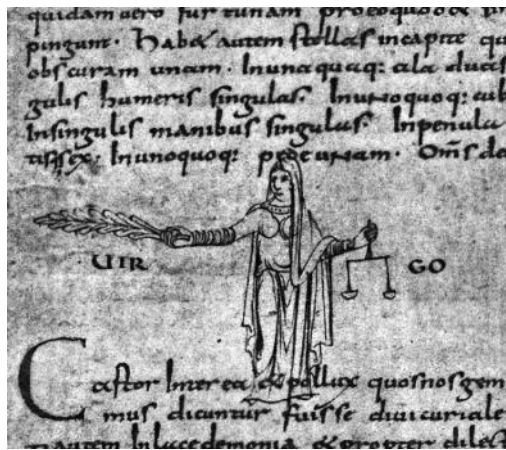 quidam uero furtunam proeoquod&
pingunt. Hab& autem stellas incapite qu
obscuram unam. Inunaquaq: ala duas
gulis humeris singulas. Inunoquoq: cub
Insingulis manibus singulas. Inpenula
tis sex. Inunoquoq: pede unam. Om̅s de
UIR GO
Castor Interea & pollux quosnosgem
mus dicuntur fuisse
autem Inlacedemonia & propter dilect